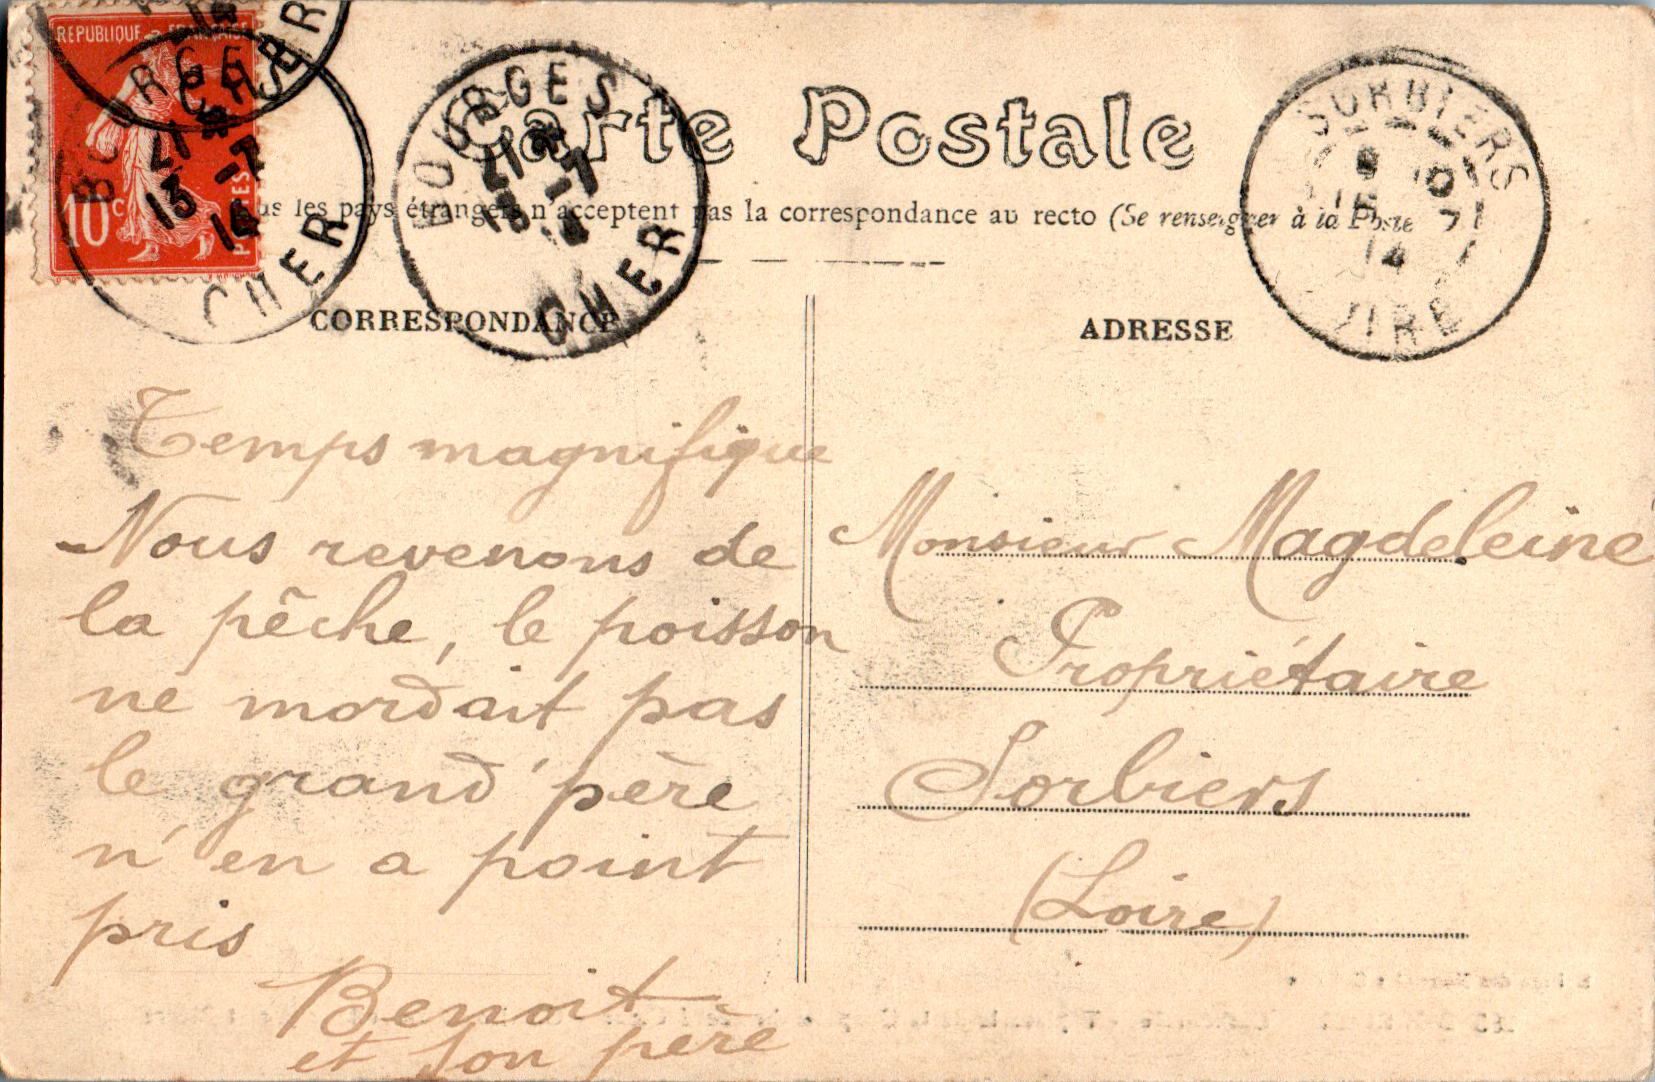 REPUBLIQUE FRANÇAISE
POSTES
10c
BOURGES
21 * 
13 -7
14
CHER
BOURGES
21 *
13 -7
14
CHER
SORBIERS
14
LOIRE
Carte Postale
les pays étrangers n'acceptent pas la correspondance au recto (Se renseigner à la Poste
CORRESPONDANCE
ADRESSE
Temps magnifique
Nous revenons de
la pêche, le poisson
ne mordait pas
le grand'père
n'en a point
pris
Benoit
et son père
Monsieur Magdeleine
Propriétaire
Sorbiers
(Loire)